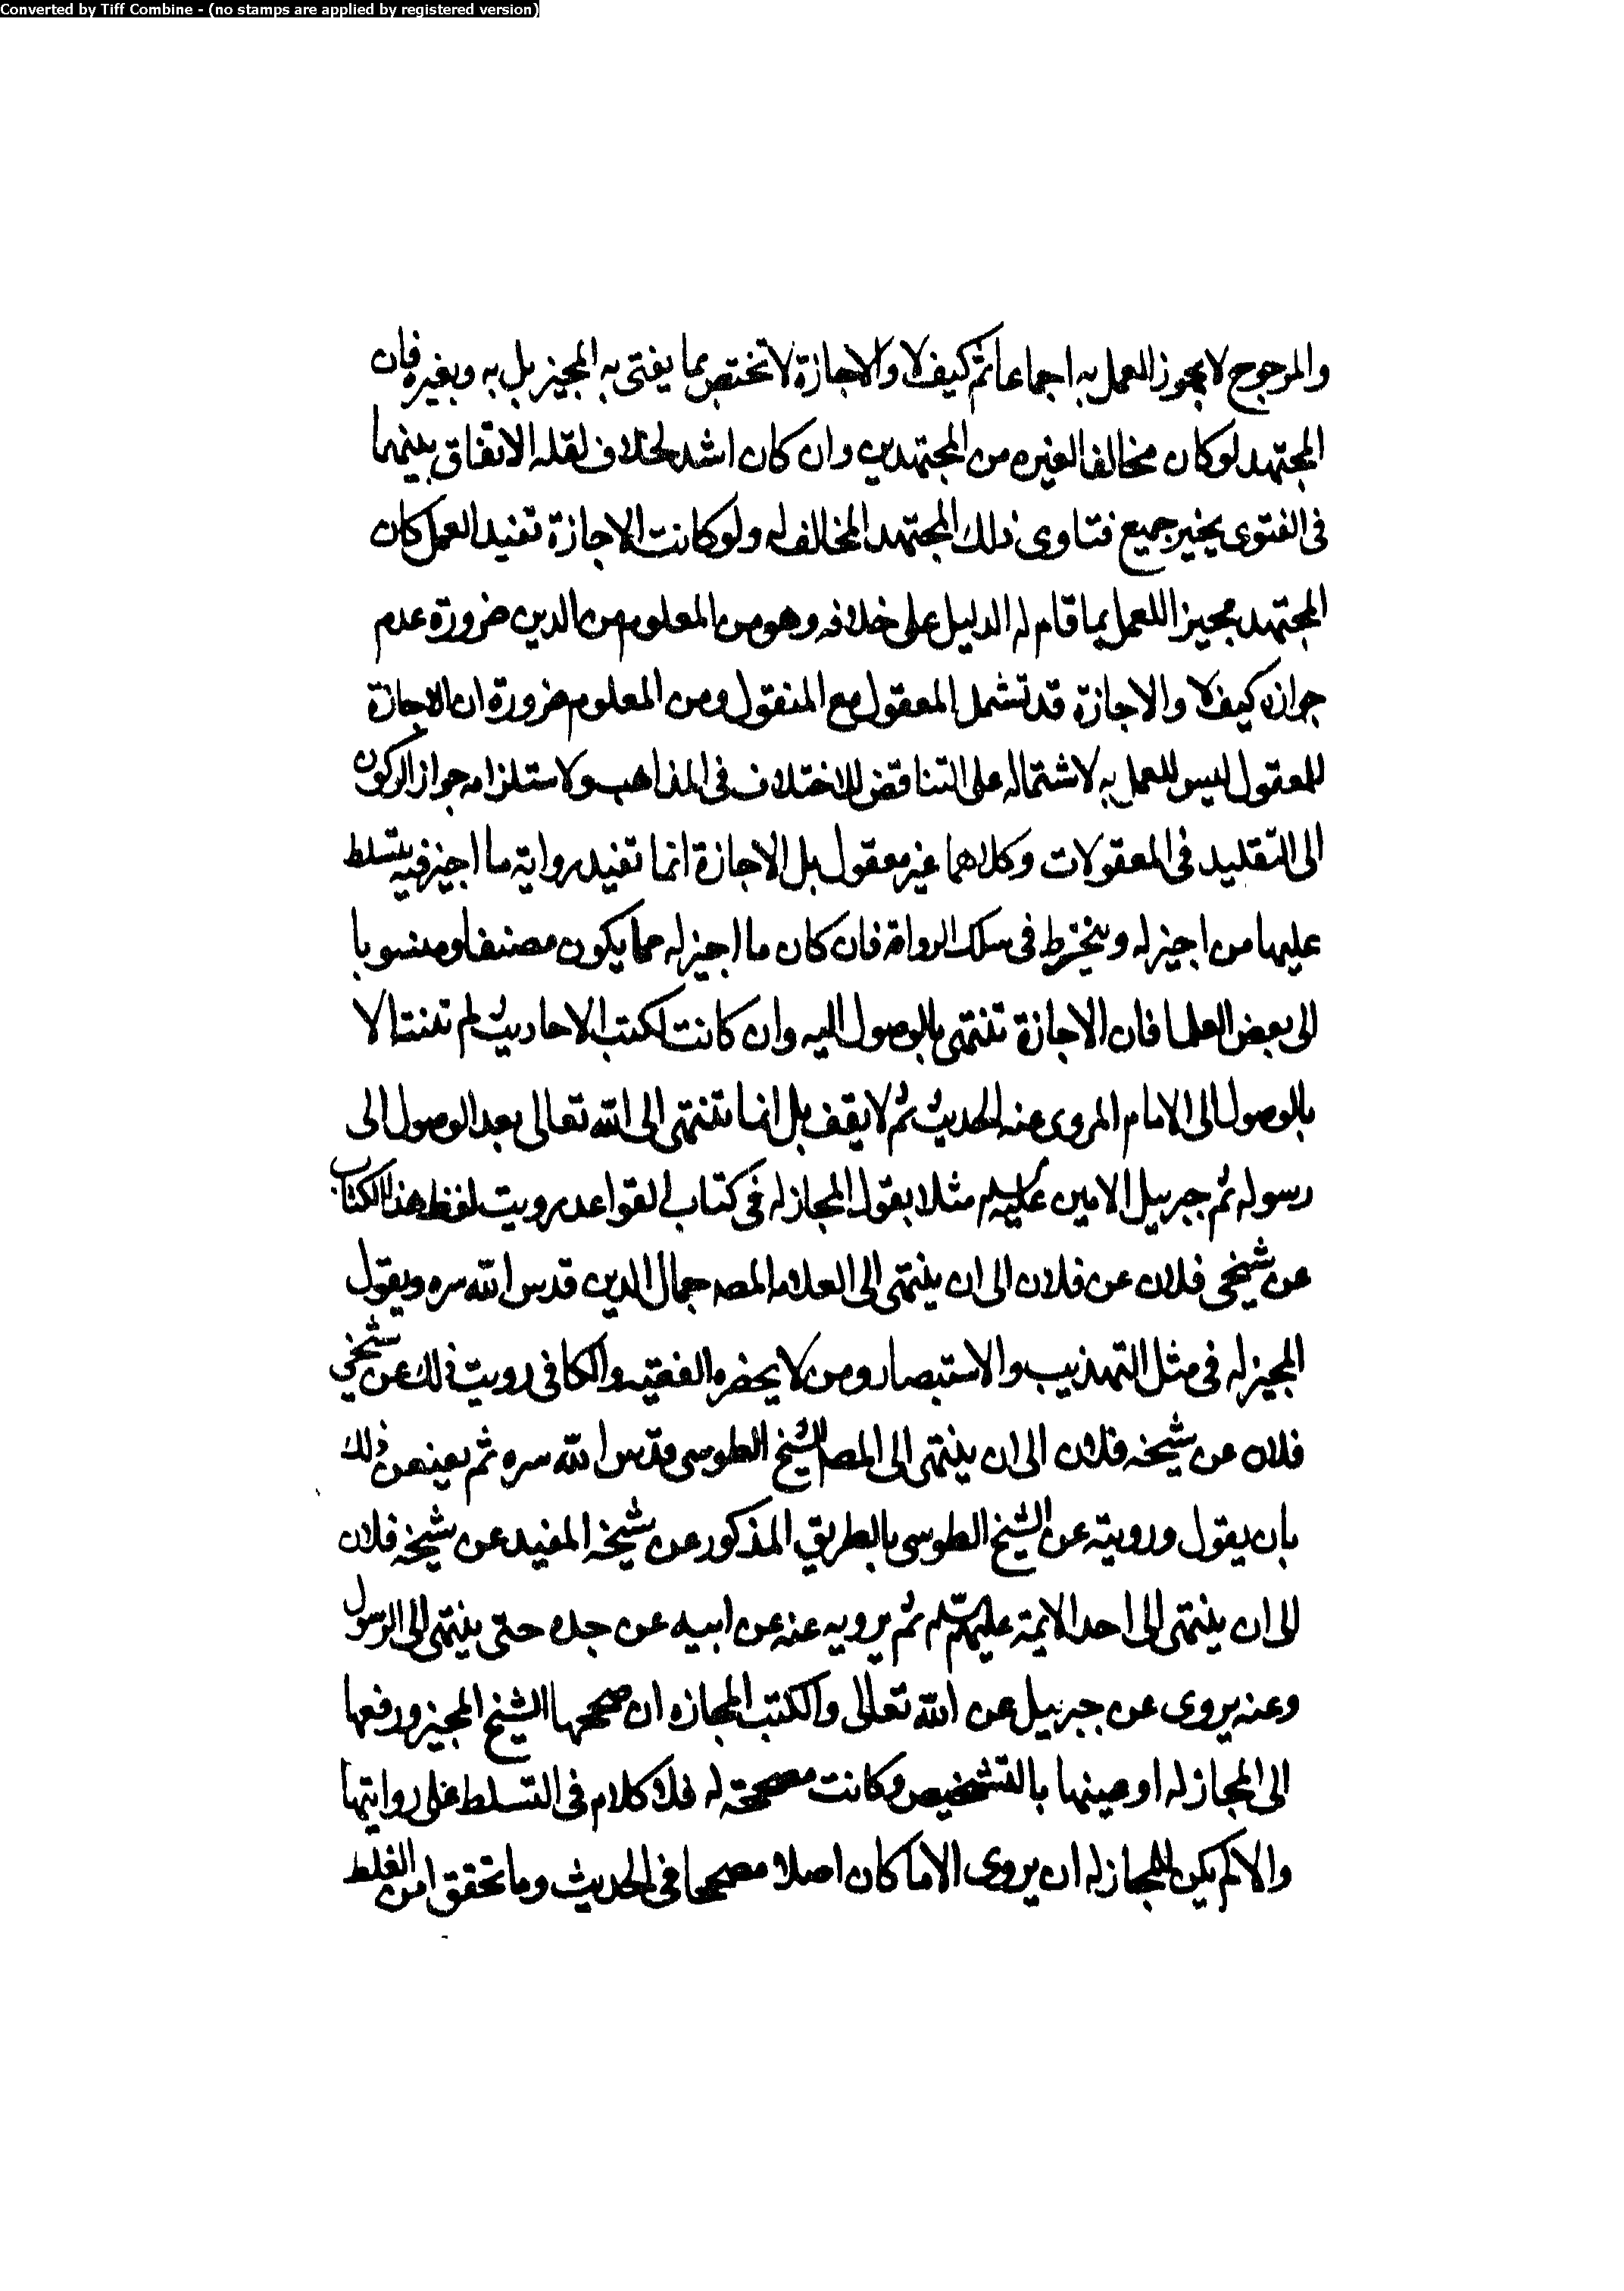 Converted by Tiff Combine - (no stamps are applied by registered version)
والمرجوح لا يجوز العمل به اجماعا ثم كيف لا والاجازة لا تختص بما يفتى به المجيز بل به وبغيره فان
المجتهد لو كان مخالفا لغيره من المجتهدين وان كان اشد لخلاف لقله الاتفاق بينهما
فى الفتوى يجيز جميع فتاوى ذلك المجتهد المخالف له ولو كانت الاجازة تفيد العمل كان
المجتهد مجيزا للعمل بما قام له الدليل على خلافه وهو من المعلوم من الدين ضرورة عدم
جوازه كيف لا والاجازة قد تشمل المعقول مع المنقول ومن المعلوم ضرورة ان الاجازة
للمعقول ليس للعمل به لاشتماله على التناقض للاختلاف فى المذاهب ولاستلزامه جواز الركون
الى التقليد فى المعقولات وكلاهما غير معقول بل الاجازة انما تفيد رواية ما اجيز فيه يتسلط
عليها من اجيز له وينخرط فى سلك الرواة فان كان ما اجيز له مما يكون مصنفا ومنسوبا
الى بعض العلما فان الاجازة تنتهى بالوصول اليه وان كانت لكتب الاحاديث لم تنته الا
بالوصول الى الامام المروى عنه الحديث ثم لا يقف بل انما تنتهى الى الله تعالى بعد الوصول الى
رسوله ثم جبرييل الامين عليهم مثلا يقول المجاز له فى كتاب القواعد رويت لفظ هذا الكتاب
عن شيخى فلان عن فلان الى ان ينتهى الى العلامه المصه جمال الدين قدس الله سره ويقول
المجيز له فى مثل التهذيب والاستبصار ومن لا يحضره الفقيه والكافى رويت ذلك عن شيخي
فلان عن شيخه فلان الى ان ينتهى الى المصه الشيخ الطوسى قدس الله سره ثم يعنعن ذلك
بان يقول ورويته عن الشيخ الطوسى بالطريق المذكور عن شيخه المفيد عن شيخه فلان
الى ان ينتهى الى احد الايمة عليهم ثم يرويه عنه عن ابيه عن جده حتى ينتهى الى الرسول
وعنه يروى عن جبرييل عن الله تعالى والكتب المجازه ان صححها الشيخ المجيز ورفعها
الى المجاز له او عينها بالتشخيص وكانت مصححة له فلا كلام فى التسلط على روايتها
والا لم يكن للمجاز له ان يروى الا ما كان اصلا مصححا فى الحديث وما تحقق امن الغلط